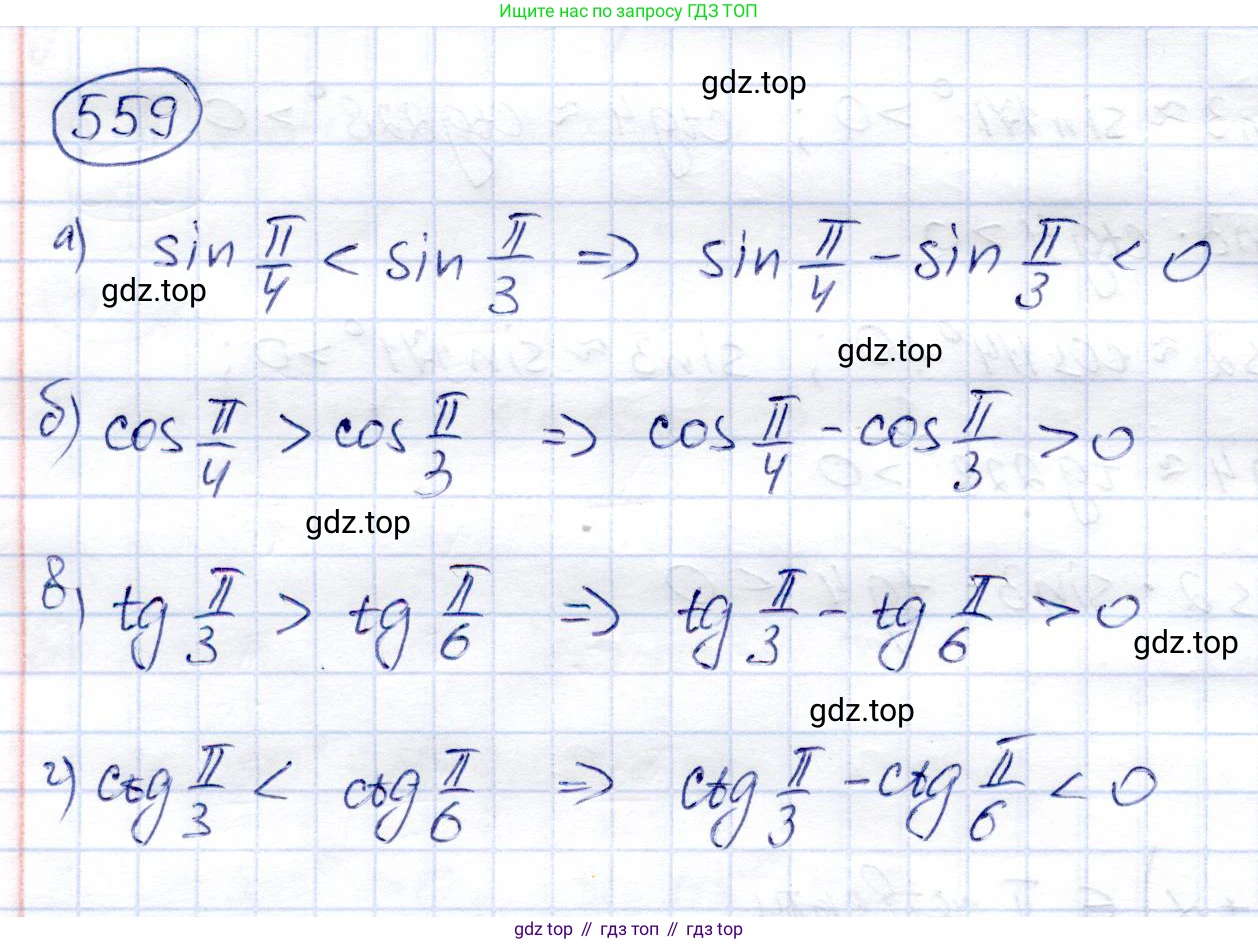 Ищите нас по запросу ГДЗ ТОП
gdz.top
559
а) sin π/4 < sin π/3 => sin π/4 - sin π/3 < 0
gdz.top
gdz.top
б) cos π/4 > cos π/3 => cos π/4 - cos π/3 > 0
gdz.top
в) tg π/3 > tg π/6 => tg π/3 - tg π/6 > 0
gdz.top
gdz.top
г) ctg π/3 < ctg π/6 => ctg π/3 - ctg π/6 < 0
gdz.top // гдз топ // gdz top